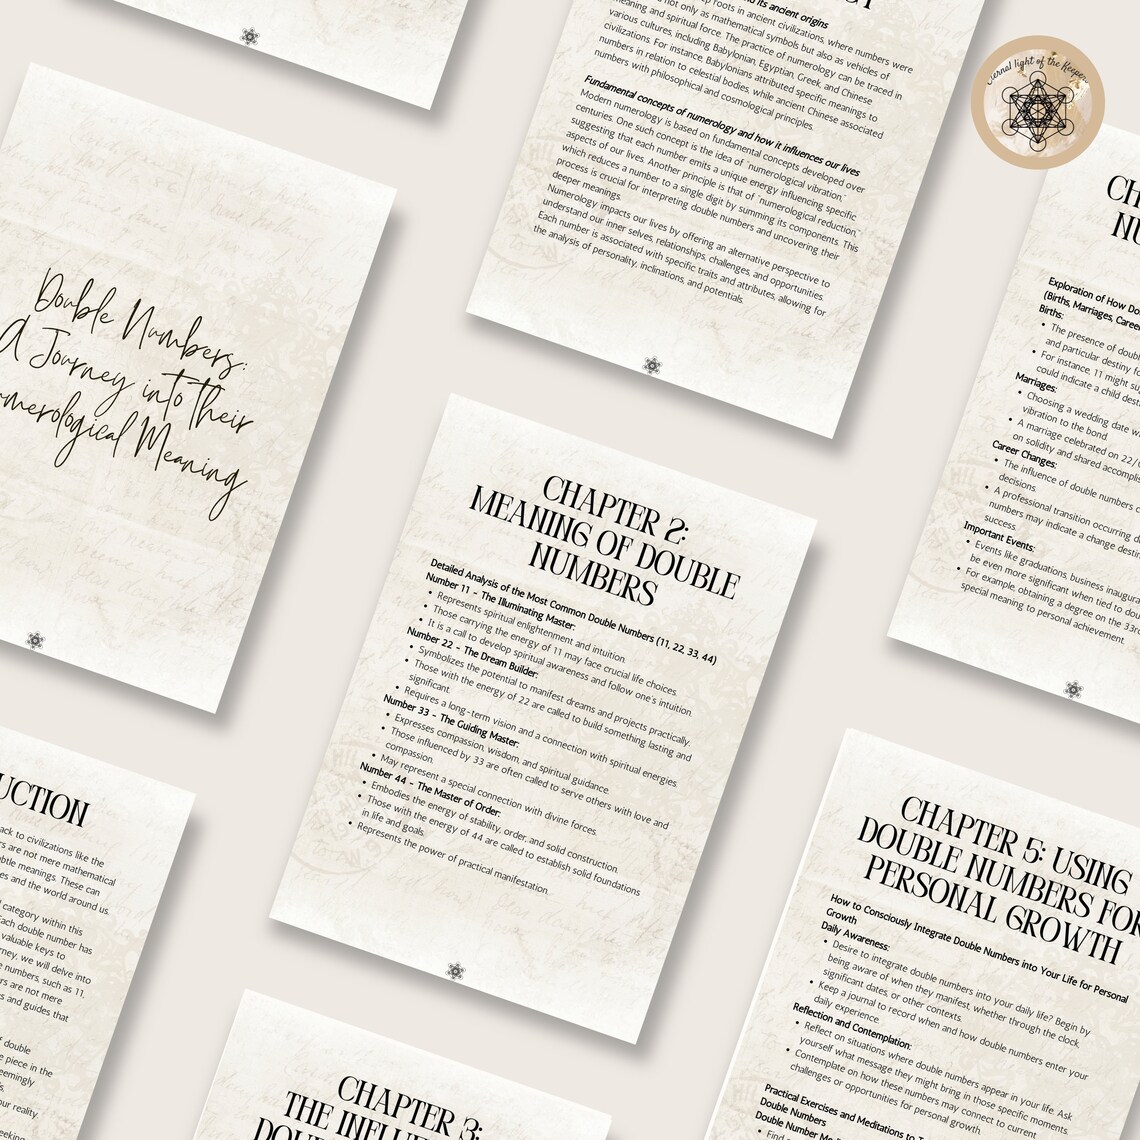 p roots in ancient civilizations, where numbers were
not only as mathematical symbols but also as vehicles of
meaning and spiritual force. The practice of numerology can be traced in
various cultures, including Babylonian, Egyptian, Greek, and Chinese
civilizations. For instance, Babylonians attributed specific meanings to
numbers in relation to celestial bodies, while ancient Chinese associated
numbers with philosophical and cosmological principles.
Fundamental concepts of numerology and how it influences our lives
Modern numerology is based on fundamental concepts developed over
centuries. One such concept is the idea of "numerological vibration,"
suggesting that each number emits a unique energy influencing specific
aspects of our lives. Another principle is that of "numerological reduction,"
which reduces a number to a single digit by summing its components. This
process is crucial for interpreting double numbers and uncovering their
deeper meanings.
Numerology impacts our lives by offering an alternative perspective to
understand our inner selves, relationships, challenges, and opportunities.
Each number is associated with specific traits and attributes, allowing for
the analysis of personality, inclinations, and potentials.
ernal light of the Keeper
Double Numbers:
A Journey into their
umerological Meaning
CHAPTER 2:
MEANING OF DOUBLE
NUMBERS
Detailed Analysis of the Most Common Double Numbers (11, 22, 33, 44)
Number 11 - The Illuminating Master:
• Represents spiritual enlightenment and intuition.
• Those carrying the energy of 11 may face crucial life choices.
• It is a call to develop spiritual awareness and follow one's intuition.
Number 22 - The Dream Builder:
• Symbolizes the potential to manifest dreams and projects practically.
• Those with the energy of 22 are called to build something lasting and
significant.
• Requires a long-term vision and a connection with spiritual energies.
Number 33 - The Guiding Master:
• Expresses compassion, wisdom, and spiritual guidance.
• Those influenced by 33 are often called to serve others with love and
compassion.
• May represent a special connection with divine forces.
Number 44 - The Master of Order:
• Embodies the energy of stability, order, and solid construction.
• Those with the energy of 44 are called to establish solid foundations
in life and goals.
• Represents the power of practical manifestation.
CH
NU
Exploration of How Do
(Births, Marriages, Caree
Births:
• The presence of doub
and particular destiny fo
• For instance, 11 might su
could indicate a child dest
Marriages:
• Choosing a wedding date w
vibration to the bond.
• A marriage celebrated on 22/
on solidity and shared accomplis
Career Changes:
• The influence of double numbers c
decisions.
• A professional transition occurring d
numbers may indicate a change desti
success.
Important Events:
• Events like graduations, business inaugura
be even more significant when tied to dou
• For example, obtaining a degree on the 33r
special meaning to personal achievement.
UCTION
ack to civilizations like the
rs are not mere mathematical
ubtle meanings. These can
es and the world around us.
l category within this
Each double number has
valuable keys to
rney, we will delve into
e numbers, such as 11,
rs are not mere
s and guides that
double
e piece in the
eemingly
s.
our reality.
eeking
CHAPTER 3:
THE INFLU
DOU
CHAPTER 5: USING
DOUBLE NUMBERS FOR
PERSONAL GROWTH
How to Consciously Integrate Double Numbers into Your Life for Personal
Growth
Daily Awareness:
• Desire to integrate double numbers into your daily life? Begin by
being aware of when they manifest, whether through the clock,
significant dates, or other contexts.
• Keep a journal to record when and how double numbers enter your
daily experience.
Reflection and Contemplation:
• Reflect on situations where double numbers appear in your life. Ask
yourself what message they might bring in those specific moments.
• Contemplate on how these numbers may connect to current
challenges or opportunities for personal growth.
Practical Exercises and Meditations to T
Double Numbers
Double Number Me
• Find